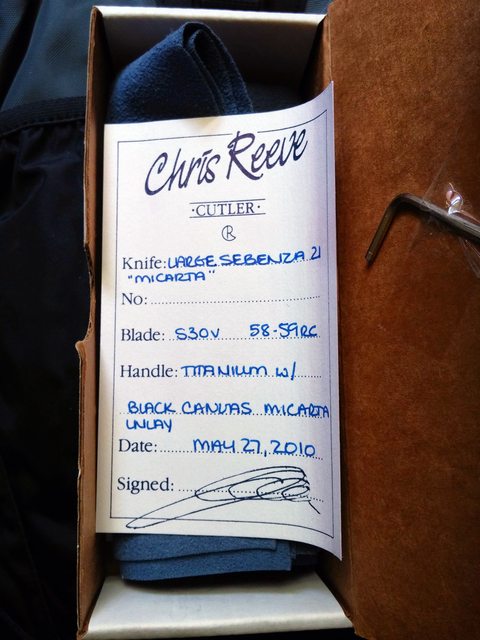 Chris Reeve
·CUTLER·
R
Knife: LARGE SEBENZA 21
"MICARTA"
No:
Blade: S30V 58-59RC
Handle: TITANIUM W/
BLACK CANVAS MICARTA
INLAY
Date: MAY 27, 2010
Signed: